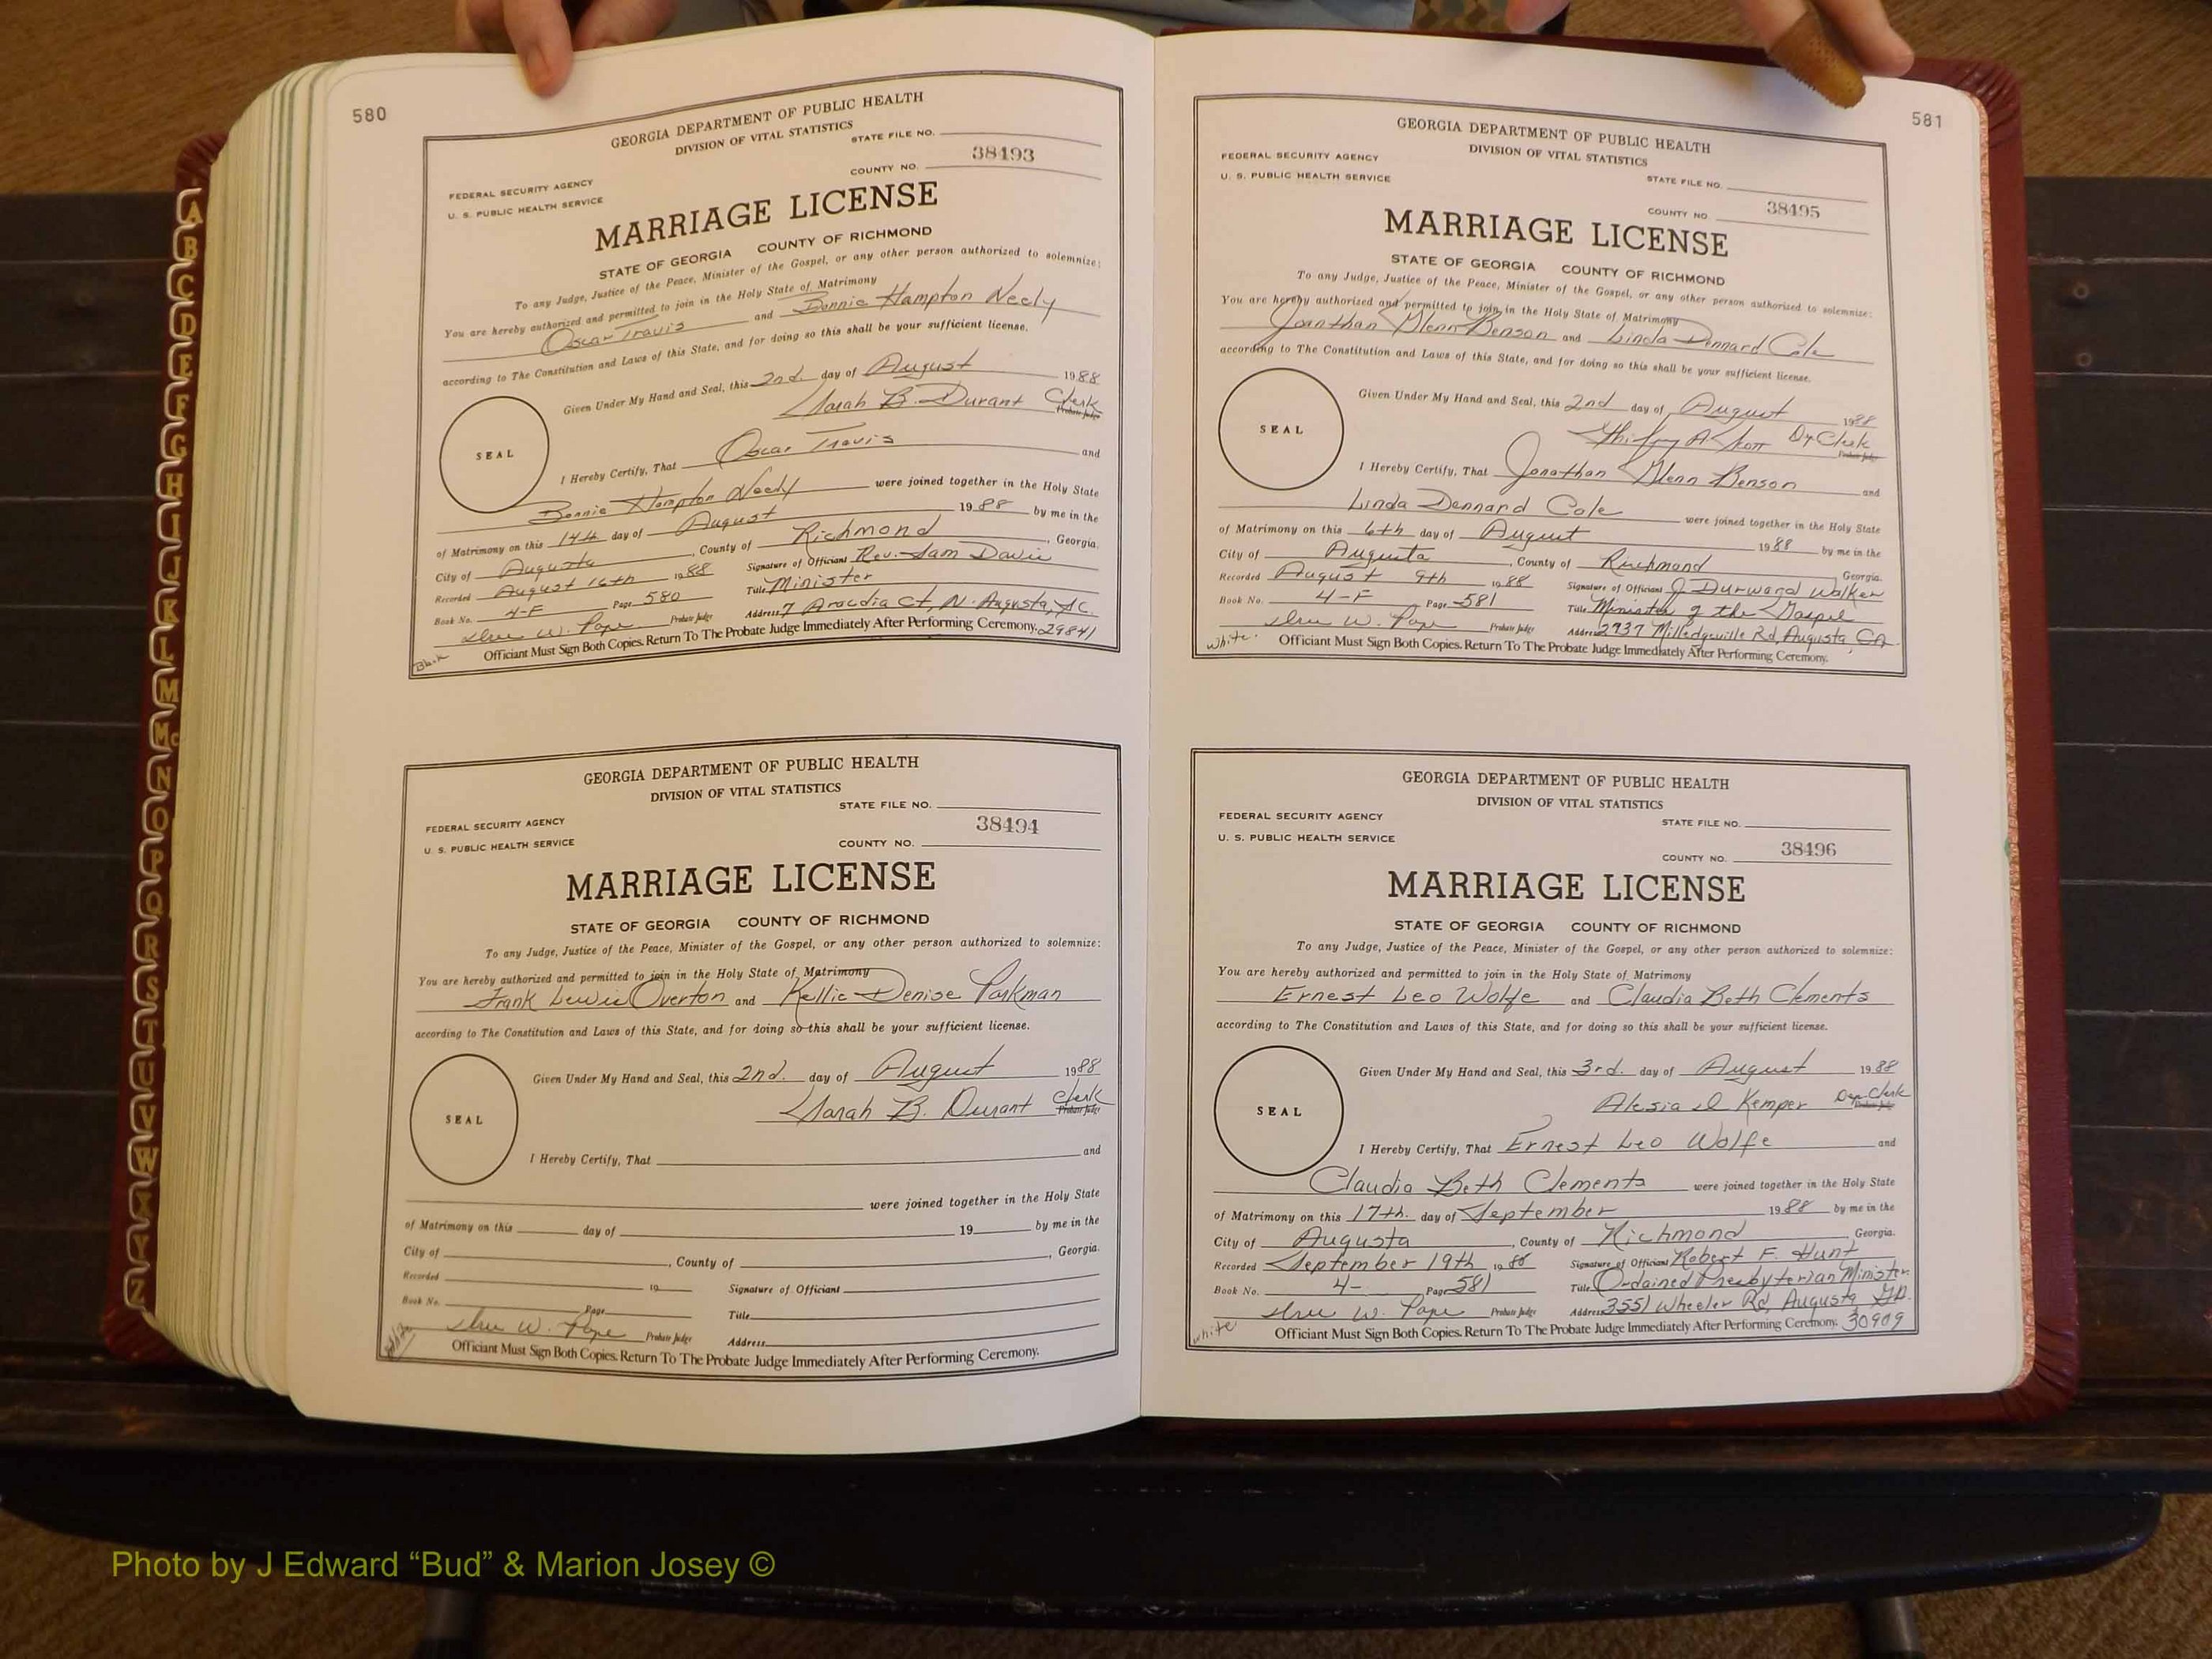 580
GEORGIA DEPARTMENT OF PUBLIC HEALTH
DIVISION OF VITAL STATISTICS
STATE FILE NO.
38493
COUNTY NO.
FEDERAL SECURITY AGENCY
U. S. PUBLIC HEALTH SERVICE
MARRIAGE LICENSE
STATE OF GEORGIA COUNTY OF RICHMOND
To any Judge, Justice of the Peace, Minister of the Gospel, or any other person authorized to solemnize:
You are hereby authorized and permitted to join in the Holy State of Matrimony
Oscar Travis and Bonnie Hampton Neely
according to The Constitution and Laws of this State, and for doing so this shall be your sufficient license.
Given Under My Hand and Seal, this 2nd. day of August 1988
Sarah B. Durant Clerk
Probate Judge
SEAL
I Hereby Certify, That Oscar Travis and
Bonnie Hampton Neely were joined together in the Holy State
of Matrimony on this 14th day of August 1988 by me in the
City of Augusta, County of Richmond, Georgia.
Recorded August 16th 1988 Signature of Officiant Rev. Sam Davis
Book No. 4-F Page 580 Title Minister
Probate Judge Address 7 Aracdia Ct, N. Augusta, SC.
29841
Officiant Must Sign Both Copies. Return To The Probate Judge Immediately After Performing Ceremony.
Black
GEORGIA DEPARTMENT OF PUBLIC HEALTH
DIVISION OF VITAL STATISTICS
STATE FILE NO.
FEDERAL SECURITY AGENCY
38494
U. S. PUBLIC HEALTH SERVICE
COUNTY NO.
MARRIAGE LICENSE
STATE OF GEORGIA COUNTY OF RICHMOND
To any Judge, Justice of the Peace, Minister of the Gospel, or any other person authorized to solemnize:
You are hereby authorized and permitted to join in the Holy State of Matrimony
Frank Lewis Overton and Kellie Denise Parkman
according to The Constitution and Laws of this State, and for doing so this shall be your sufficient license.
Given Under My Hand and Seal, this 2nd. day of August 1988
Sarah B. Durant Clerk
Probate Judge
SEAL
I Hereby Certify, That and
were joined together in the Holy State
of Matrimony on this day of 19 by me in the
City of , County of , Georgia.
Recorded 19 Signature of Officiant
Book No. Page Title
W. Pope Probate Judge Address
Officiant Must Sign Both Copies. Return To The Probate Judge Immediately After Performing Ceremony.
581
GEORGIA DEPARTMENT OF PUBLIC HEALTH
DIVISION OF VITAL STATISTICS
FEDERAL SECURITY AGENCY
U. S. PUBLIC HEALTH SERVICE
STATE FILE NO.
COUNTY NO. 38495
MARRIAGE LICENSE
STATE OF GEORGIA COUNTY OF RICHMOND
To any Judge, Justice of the Peace, Minister of the Gospel, or any other person authorized to solemnize:
You are hereby authorized and permitted to join in the Holy State of Matrimony
Jonathan Glenn Benson and Linda Dennard Cole
according to The Constitution and Laws of this State, and for doing so this shall be your sufficient license.
Given Under My Hand and Seal, this 2nd day of August 1988
A Scott Dy. Clerk
Probate Judge
SEAL
I Hereby Certify, That Jonathan Glenn Benson and
Linda Dennard Cole were joined together in the Holy State
of Matrimony on this 6th day of August 1988 by me in the
City of Augusta, County of Richmond Georgia.
Recorded August 9th 1988 Signature of Officiant J. Durward Walker
Book No. 4-F Page 581 Title Minister of the Gospel
W. Pope Probate Judge Address 2937 Milledgeville Rd, Augusta, GA
White. Officiant Must Sign Both Copies. Return To The Probate Judge Immediately After Performing Ceremony.
GEORGIA DEPARTMENT OF PUBLIC HEALTH
DIVISION OF VITAL STATISTICS
FEDERAL SECURITY AGENCY
STATE FILE NO.
U. S. PUBLIC HEALTH SERVICE
COUNTY NO. 38496
MARRIAGE LICENSE
STATE OF GEORGIA COUNTY OF RICHMOND
To any Judge, Justice of the Peace, Minister of the Gospel, or any other person authorized to solemnize:
You are hereby authorized and permitted to join in the Holy State of Matrimony
Ernest Leo Wolfe and Claudia Beth Clements
according to The Constitution and Laws of this State, and for doing so this shall be your sufficient license.
Given Under My Hand and Seal, this 3rd. day of August 1988
Alesia D Kemper Dep. Clerk
Probate Judge
SEAL
I Hereby Certify, That Ernest Leo Wolfe and
Claudia Beth Clements were joined together in the Holy State
of Matrimony on this 17th. day of September 1988 by me in the
City of Augusta, County of Richmond Georgia.
Recorded September 19th 1988 Signature of Officiant Robert F. Hunt
Book No. 4- Page 581 Title Ordained Presbyterian Minister
W. Pope Probate Judge Address 3551 Wheeler Rd, Augusta, GA.
White Officiant Must Sign Both Copies. Return To The Probate Judge Immediately After Performing Ceremony. 30909
A
B
C
D
E
F
G
H
I
J
K
L
M
Mc
N
O
P
Q
R
S
T
U
V
W
X
Y
Z
Photo by J Edward “Bud” & Marion Josey ©